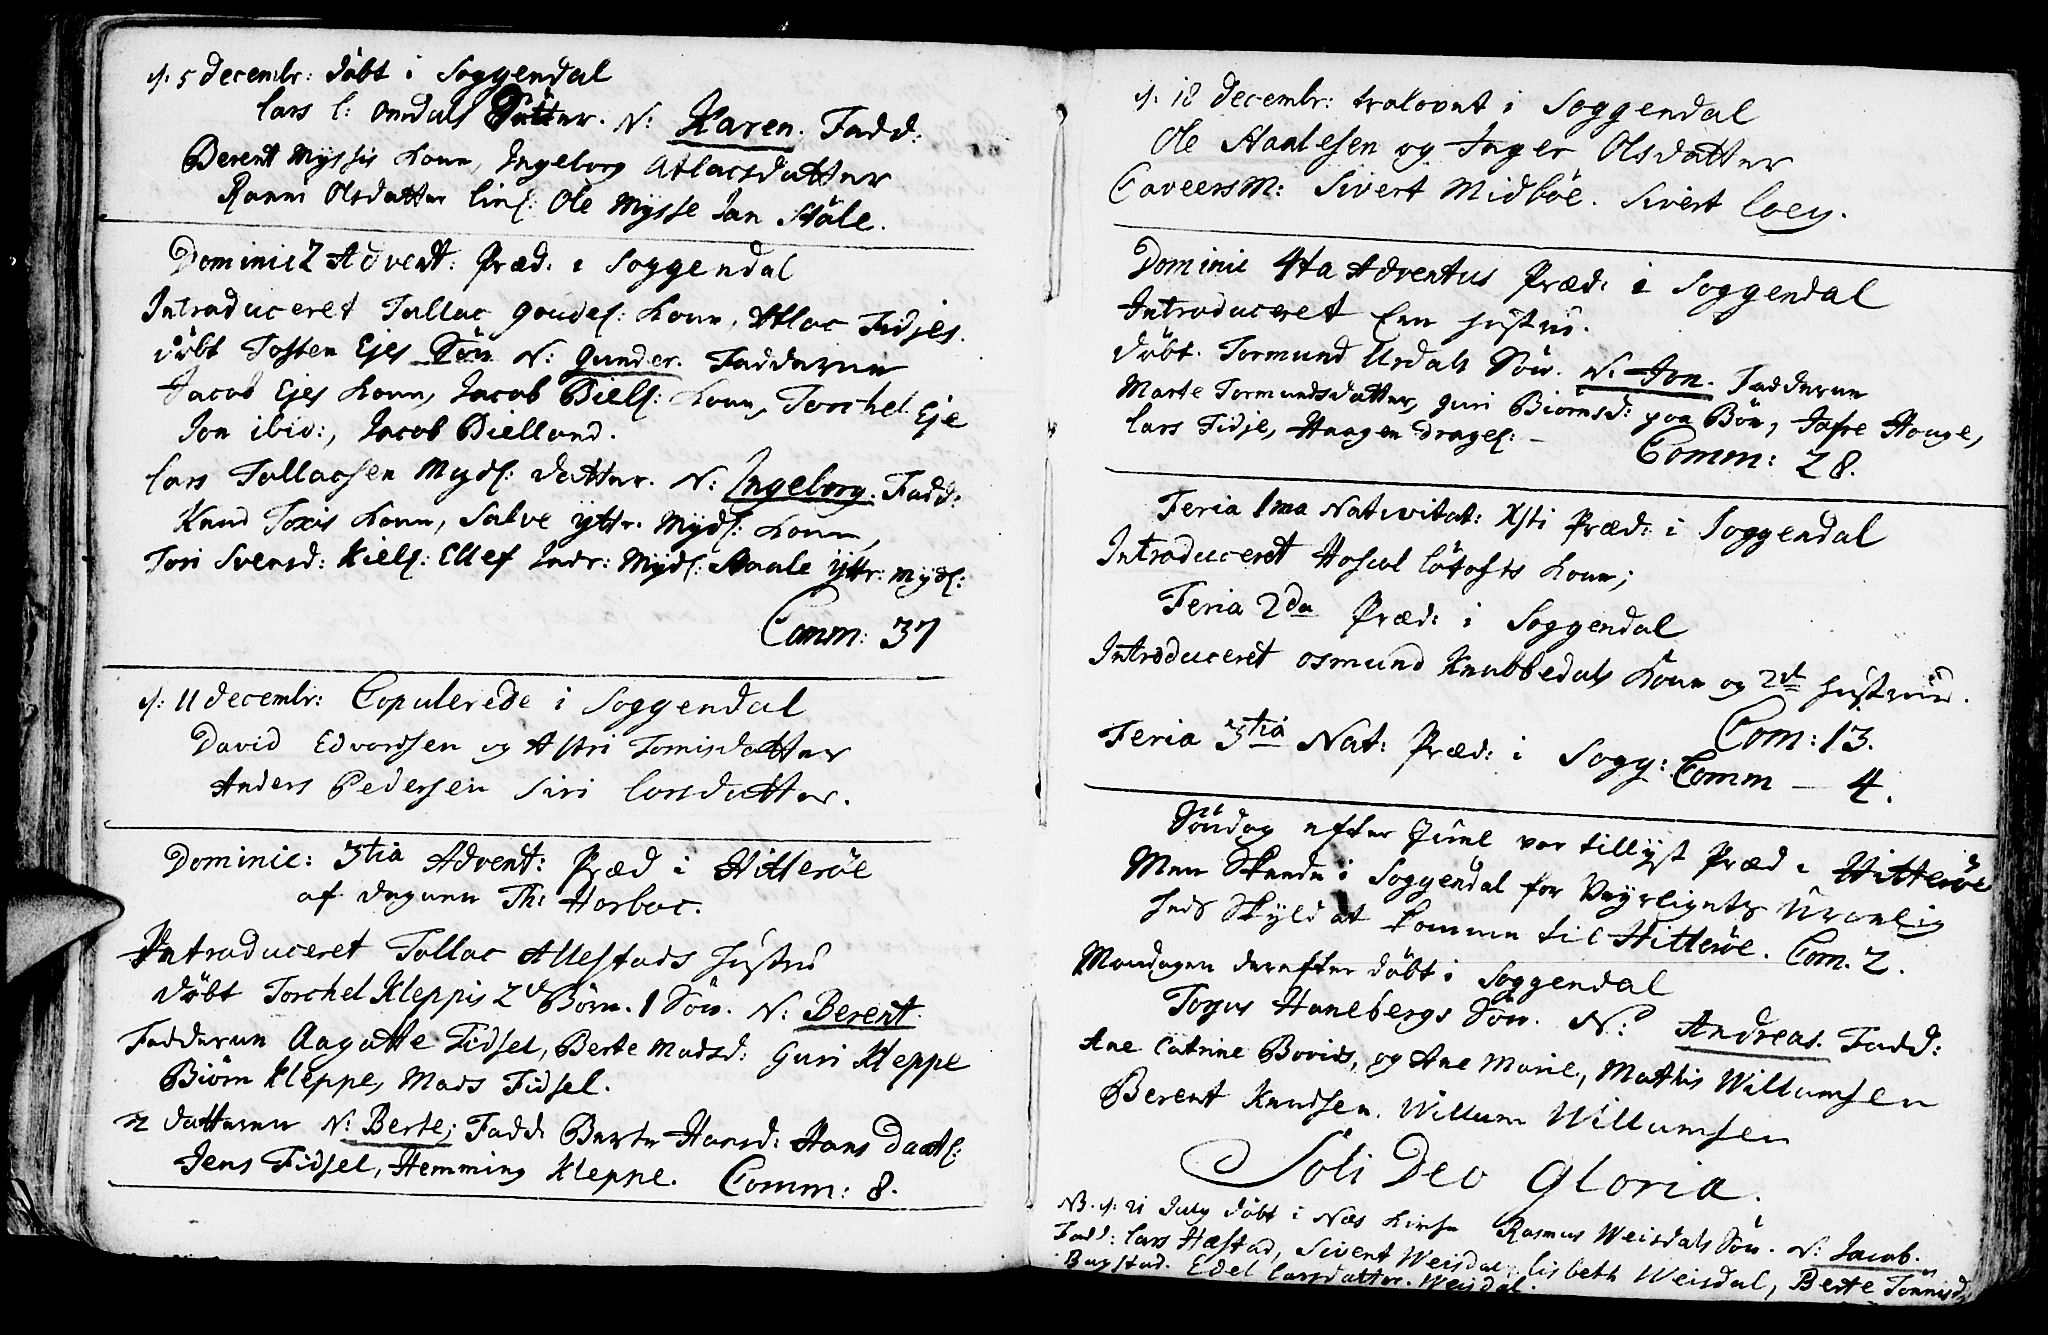 d: 5 decembr: döbt i Soggendal
Lars l: Omdals Datter. N: Karen. Fadd:
Berent Myssis Kone, Ingeborg Atlacsdatter
Olsdatter Ole Mysse Jan Ståle.
Dominic 2 Advent: Præd: i Soggendal
Introduceret Tallac Kone, Atlac Fidjes.
döbt Tosten Ejes Sön N: Gunder. Fadderne
Jacob Ejes Kone, Jacob Biell: Kone, Torchel Eje
Jon ibid:, Jacob Bielland.
Lars Tallacsen Mydl: datter. N: Ingeborg. Fadd:
Knud Toxis Kone, Salve yttr. Mydl: Kone,
Tori Svensd: Kiell: Ellef Indr: Mydl: Staale yttr: Mydl:
Comm: 37
d: 11 decembr: Copulerede i Soggendal
David Edvordsen og Astri Tonnisdatter
Anders Pedersen Siri Larsdatter.
Dominic: 3tia Advent: Præd i Hitteröe
af Degnen Th: Horboe.
Introduceret Tollac Allestads Hustru
döbt Torchel Kleppis 2de Börn. 1 Sön. N: Berent.
Fadderne Aagatte Fidsel, Berte Madsd: Guri Kleppe
Biörn Kleppe, Mads Fidsel.
2 datteren N: Berte; Fadd: Berte Hansd: Hans Daatl:
Jens Fidsel, Hemming Kleppe. Comm: 8.
d: 18 decembr: trolovet i Soggendal
Ole Staalesen og Inger Olsdatter
Caveersm: Sivert Midböe. Sivert Loey.
Dominic 4ta Adventus Præd: i Soggendal
Introduceret Een Hustru.
döbt. Tormund Urdals Sön. N: Jon. Fadderne
Marte Tormundsdatter, Guri Biörnsd: paa Böe, Tafre Houge,
Lars Fidje, Haagen Dragel: -
Comm: 28.
Feria 1ma Nativitat: Xsti Præd: i Soggendal
Introduceret Hoscol Kone;
Feria 2da Præd: i Soggendal
Introduceret Osmund Knubbedals Kone og 2de Hustruer.
Com: 13.
Feria 3tia Nat: Præd: i Sogg: Comm - 4.
Söndag efter Juul var tillyst Præd i Hitteröe
Men Skeede i Soggendal for Veyrligets Uroelig
heds Skyld at komme til Hitteröe. Com. 2.
Mandagen derefter döbt i Soggendal
Hanebergs Sön. N: Andreas. Fadd:
Ane Catrine Bovids, og Ane Marie, Mathis Willumsen
Berent Knudsen. Willum Willumsen
Soli Deo Gloria.
NB. d: 21 July döbt i Næs Kirke Rasmus Weisdals Sön. N: Jacob.
Fadd: Lars Hæstad, Sivert Weisdal, Lisbeth Weisdal, Berte Tonnisd
Bagstad. Edel Larsdatter. Weisdal.